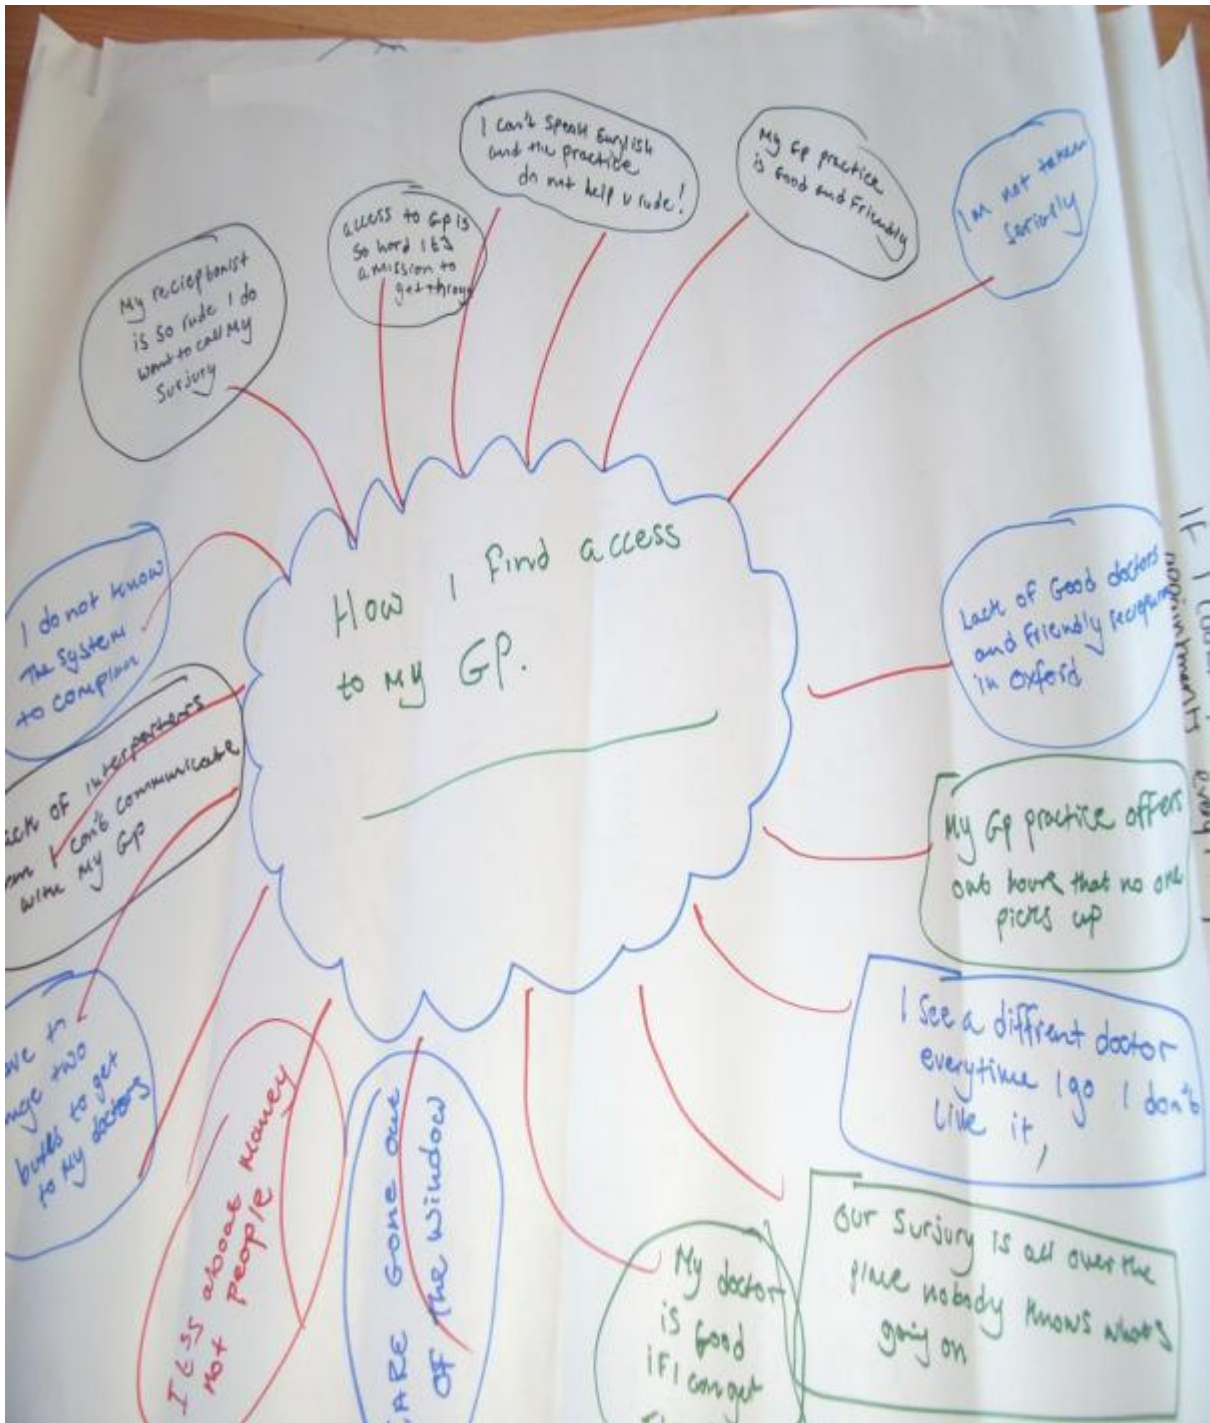 How I find access
to my GP.
My recieptonist
is so rude I do
want to call My
Surjury
access to GP is
so hard its
a mission to
get throug
I can't speak English
and the practice
do not help v rude!
My GP practice
is Good and Friendly
Im not taken
seriously
Lack of Good doctors
and friendly
in Oxford
My GP practice offers
out hours that no one
picks up
I see a diffrent doctor
everytime I go I don't
like it,
Our Surjury is all over the
place nobody knows whats
going on
My doctor
is Good
if I can get
CARE GONE OUT
OF The WINDOW
Its about money
not people
two
to get
to My doctors
of interparters
I can't communicate
with My GP
I do not know
The system
to complain
IF I
appointments
every